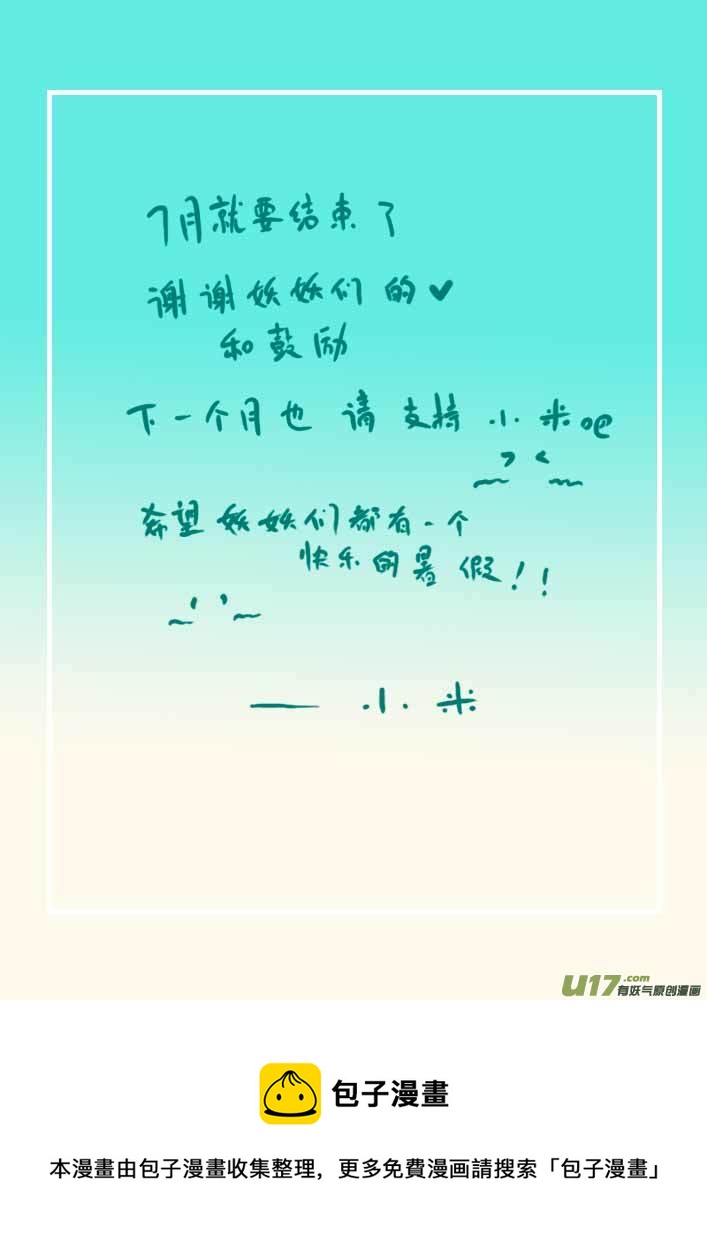 7月就要结束了
谢谢妖妖们的♥
和鼓励
下一个月也请支持小米oe
希望妖妖们都有一个
快乐的暑假!!
—— 小米
U17.com
有妖气原创漫画
包子漫畫
本漫畫由包子漫畫收集整理,更多免費漫画請搜索「包子漫畫」